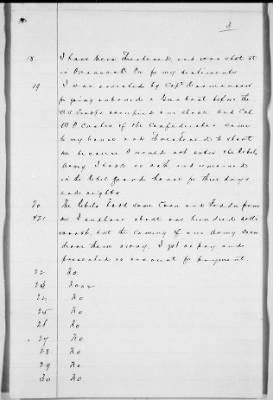 3
18. I have been Threatened, and was shot at
in
for my sentiments
19 I was arrested by Capt
for going aboard a Gun boat before the
occupied our shore and Col
of the Confederates came
to my house and Threatened to shoot
me because I would not enter the Rebel
Army I took an oath and remained
in the Rebel guard house for three days
and nights
20 The Rebels took some Corn and Fodder from
& 21 me I suppose about one hundred dolls
worth, but the coming of our Army soon
drove them away, I got no pay and
presented no account for payment.
22 No.
23 None
24 No
25 No
26 No
27 No
28 No
29 No
30 No